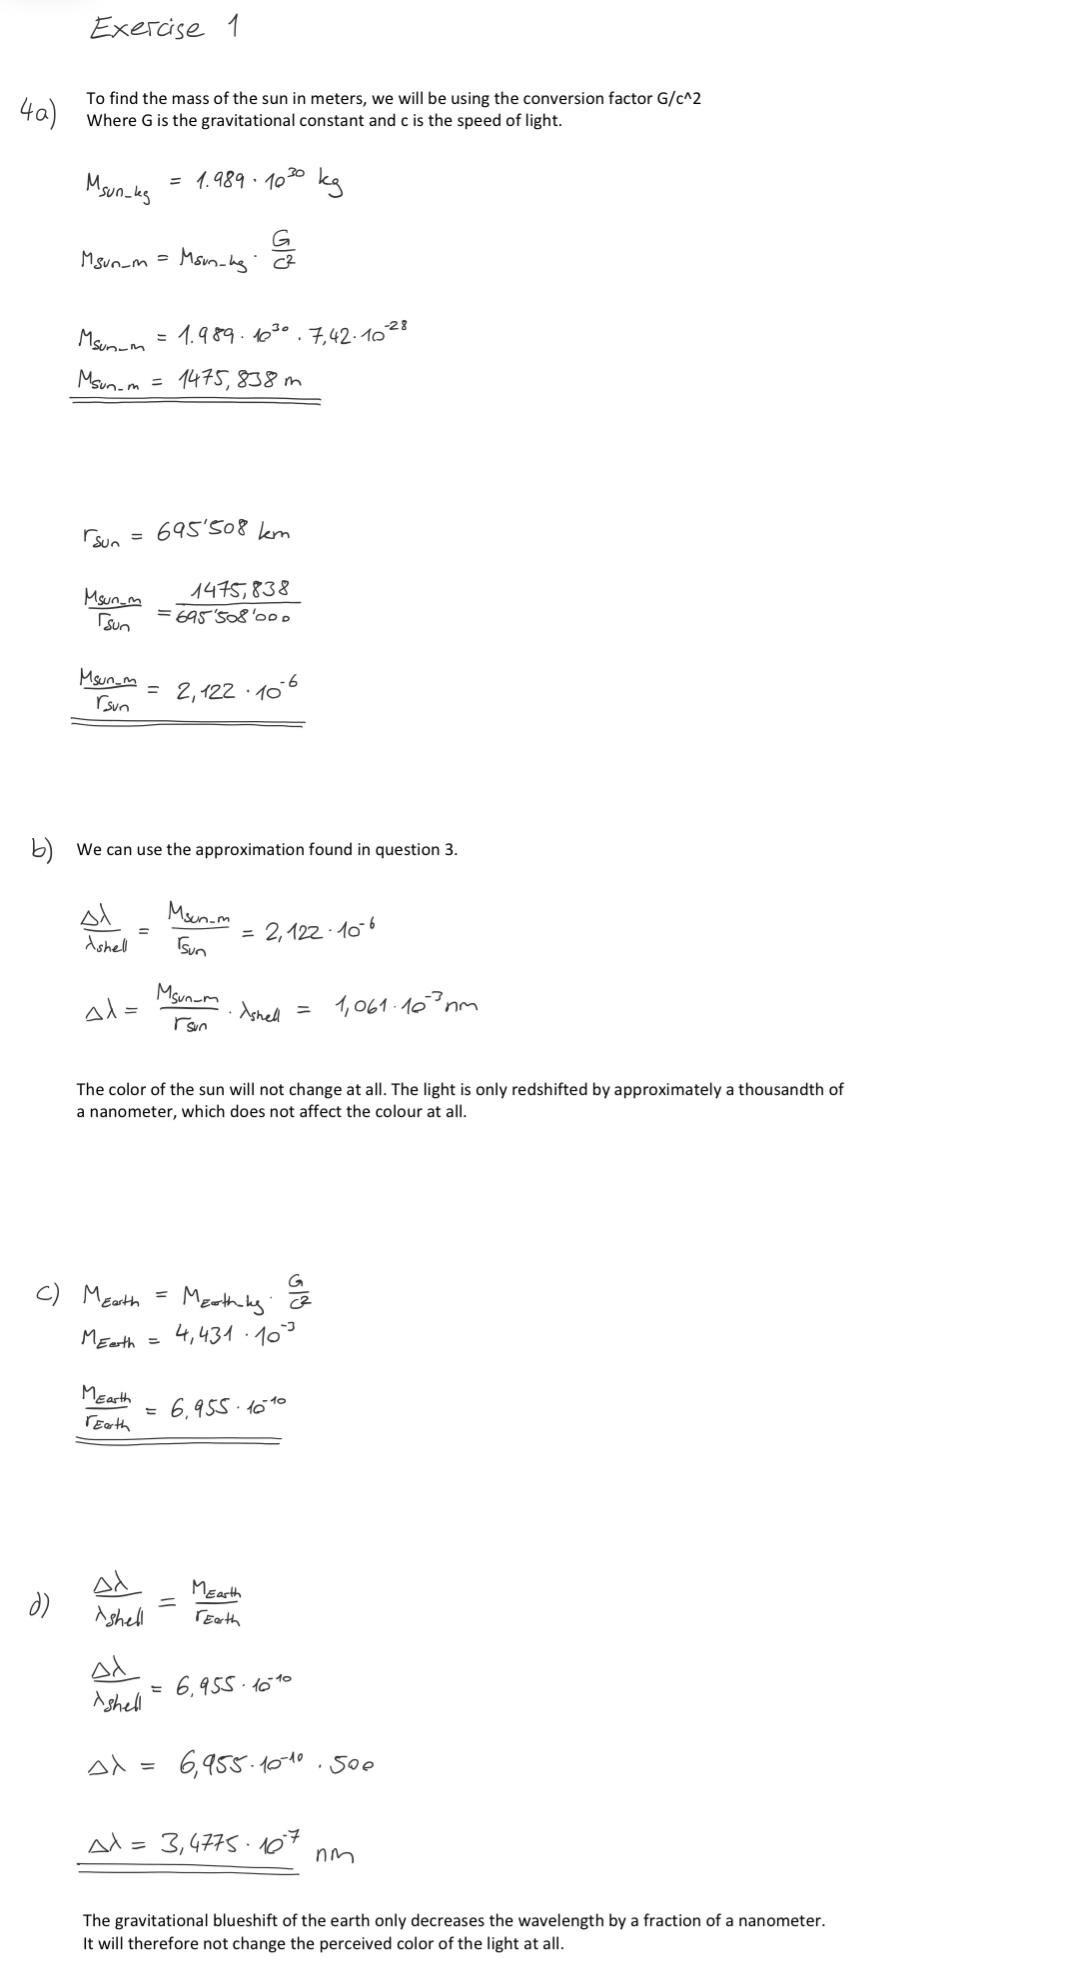 Exercise 1
4a) To find the mass of the sun in meters, we will be using the conversion factor G/c^2
Where G is the gravitational constant and c is the speed of light.
M_sun_kg = 1.989 · 10^30 kg
M_sun_m = M_sun_kg · G/c^2
M_sun_m = 1.989 · 10^30 · 7,42 · 10^-28
M_sun_m = 1475,838 m
r_sun = 695'508 km
M_sun_m / r_sun = 1475,838 / 695'508'000
M_sun_m / r_sun = 2,122 · 10^-6
b) We can use the approximation found in question 3.
Δλ / λ_shell = M_sun_m / r_sun = 2,122 · 10^-6
Δλ = M_sun_m / r_sun · λ_shell = 1,061 · 10^-3 nm
The color of the sun will not change at all. The light is only redshifted by approximately a thousandth of
a nanometer, which does not affect the colour at all.
c) M_Earth = M_Earth_kg · G/c^2
M_Earth = 4,431 · 10^-3
M_Earth / r_Earth = 6,955 · 10^-10
d) Δλ / λ_shell = M_Earth / r_Earth
Δλ / λ_shell = 6,955 · 10^-10
Δλ = 6,955 · 10^-10 · 500
Δλ = 3,4775 · 10^-7 nm
The gravitational blueshift of the earth only decreases the wavelength by a fraction of a nanometer.
It will therefore not change the perceived color of the light at all.